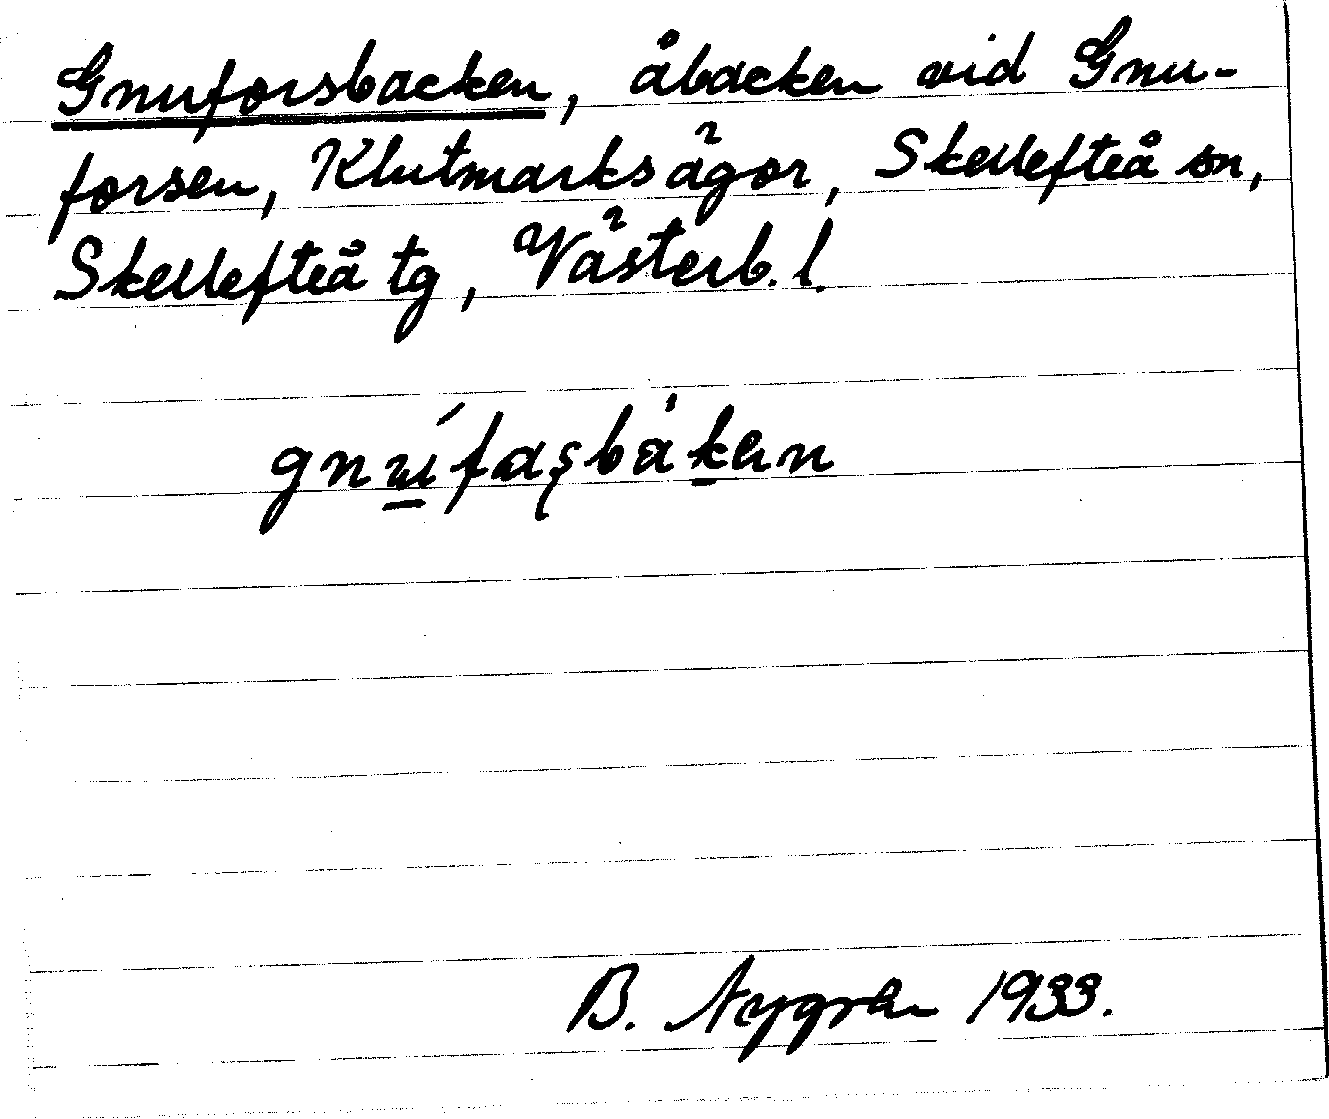 Gnuforsbacken, åbacken vid Gnu-
forsen, Klutmarks ägor, Skellefteå sn,
Skellefteå tg, Västerb. l.
B. Nygren 1933.